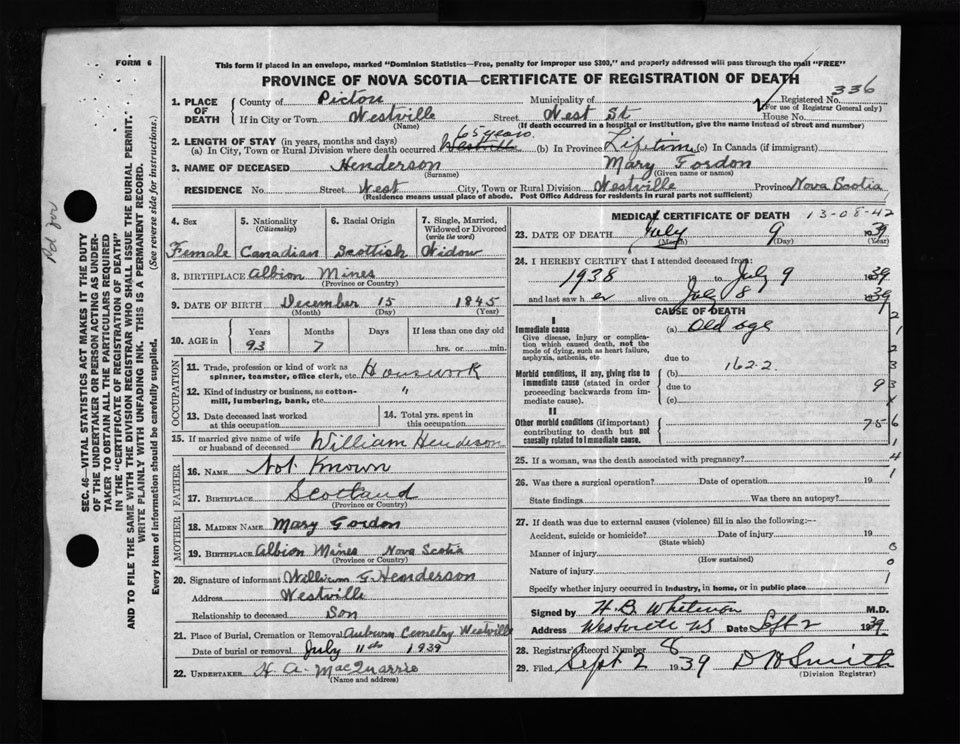 FORM 6
This form if placed in an envelope, marked "Dominion Statistics—Free, penalty for improper use $300," and properly addressed will pass through the mail "FREE"
PROVINCE OF NOVA SCOTIA—CERTIFICATE OF REGISTRATION OF DEATH
SEC. 46—VITAL STATISTICS ACT MAKES IT THE DUTY
OF THE UNDERTAKER OR PERSON ACTING AS UNDER-
TAKER TO OBTAIN ALL THE PARTICULARS REQUIRED
IN THE "CERTIFICATE OF REGISTRATION OF DEATH"
AND TO FILE THE SAME WITH THE DIVISION REGISTRAR WHO SHALL ISSUE THE BURIAL PERMIT.
WRITE PLAINLY WITH UNFADING INK. THIS IS A PERMANENT RECORD.
Every item of information should be carefully supplied. (See reverse side for instructions.)
1. PLACE OF DEATH
County of Pictou Municipality of Registered No. 336
(For use of Registrar General only)
If in City or Town Westville Street West St House No.
(Name) (If death occurred in a hospital or institution, give the name instead of street and number)
2. LENGTH OF STAY (in years, months and days) 65 years
(a) In City, Town or Rural Division where death occurred Westville (b) In Province Lifetime (c) In Canada (if immigrant)
3. NAME OF DECEASED Henderson Mary Fordon
(Surname) (Given name or names)
RESIDENCE No. Street West City, Town or Rural Division Westville Province Nova Scotia
(Residence means usual place of abode. Post Office Address for residents in rural parts not sufficient)
4. Sex 5. Nationality (Citizenship) 6. Racial Origin 7. Single, Married, Widowed or Divorced (write the word)
Female Canadian Scottish Widow
8. BIRTHPLACE Albion Mines
(Province or Country)
9. DATE OF BIRTH December 15 1845
(Month) (Day) (Year)
10. AGE in Years Months Days If less than one day old
93 7 hrs. or min.
OCCUPATION
11. Trade, profession or kind of work as spinner, teamster, office clerk, etc. Housework
12. Kind of industry or business, as cotton-mill, lumbering, bank, etc. "
13. Date deceased last worked at this occupation
14. Total yrs. spent in this occupation
15. If married give name of wife or husband of deceased William Henderson
FATHER
16. NAME Not Known
17. BIRTHPLACE Scotland
(Province or Country)
MOTHER
18. MAIDEN NAME Mary Gordon
19. BIRTHPLACE Albion Mines Nova Scotia
(Province or Country)
20. Signature of informant William G. Henderson
Address Westville
Relationship to deceased Son
21. Place of Burial, Cremation or Removal Auburn Cemetry Westville
Date of burial or removal July 11th 1939
22. UNDERTAKER H A. MacQuarrie
(Name and address)
MEDICAL CERTIFICATE OF DEATH 13-08-42
23. DATE OF DEATH July 9 1939
(Month) (Day) (Year)
24. I HEREBY CERTIFY that I attended deceased from:
1938 19 to July 9 1939
and last saw h er alive on July 8 1939
CAUSE OF DEATH
I
Immediate cause (a) Old age
Give disease, injury or complication which caused death, not the mode of dying, such as heart failure, asphyxia, asthenia, etc.
due to
162.2.
Morbid conditions, if any, giving rise to immediate cause (stated in order proceeding backwards from immediate cause). (b)
due to 93
(c)
II
Other morbid conditions (if important) contributing to death but not causally related to immediate cause. 75
25. If a woman, was the death associated with pregnancy?
26. Was there a surgical operation? Date of operation 19
State findings Was there an autopsy?
27. If death was due to external causes (violence) fill in also the following:—
Accident, suicide or homicide? Date of injury 19
(State which)
Manner of injury
(How sustained)
Nature of injury
Specify whether injury occurred in industry, in home, or in public place
Signed by H. B. Whitman M.D.
Address Westville NS Date Sept 2 1939.
28. Registrar's Record Number 8
29. Filed Sept 2 1939 D H Smith
(Division Registrar)